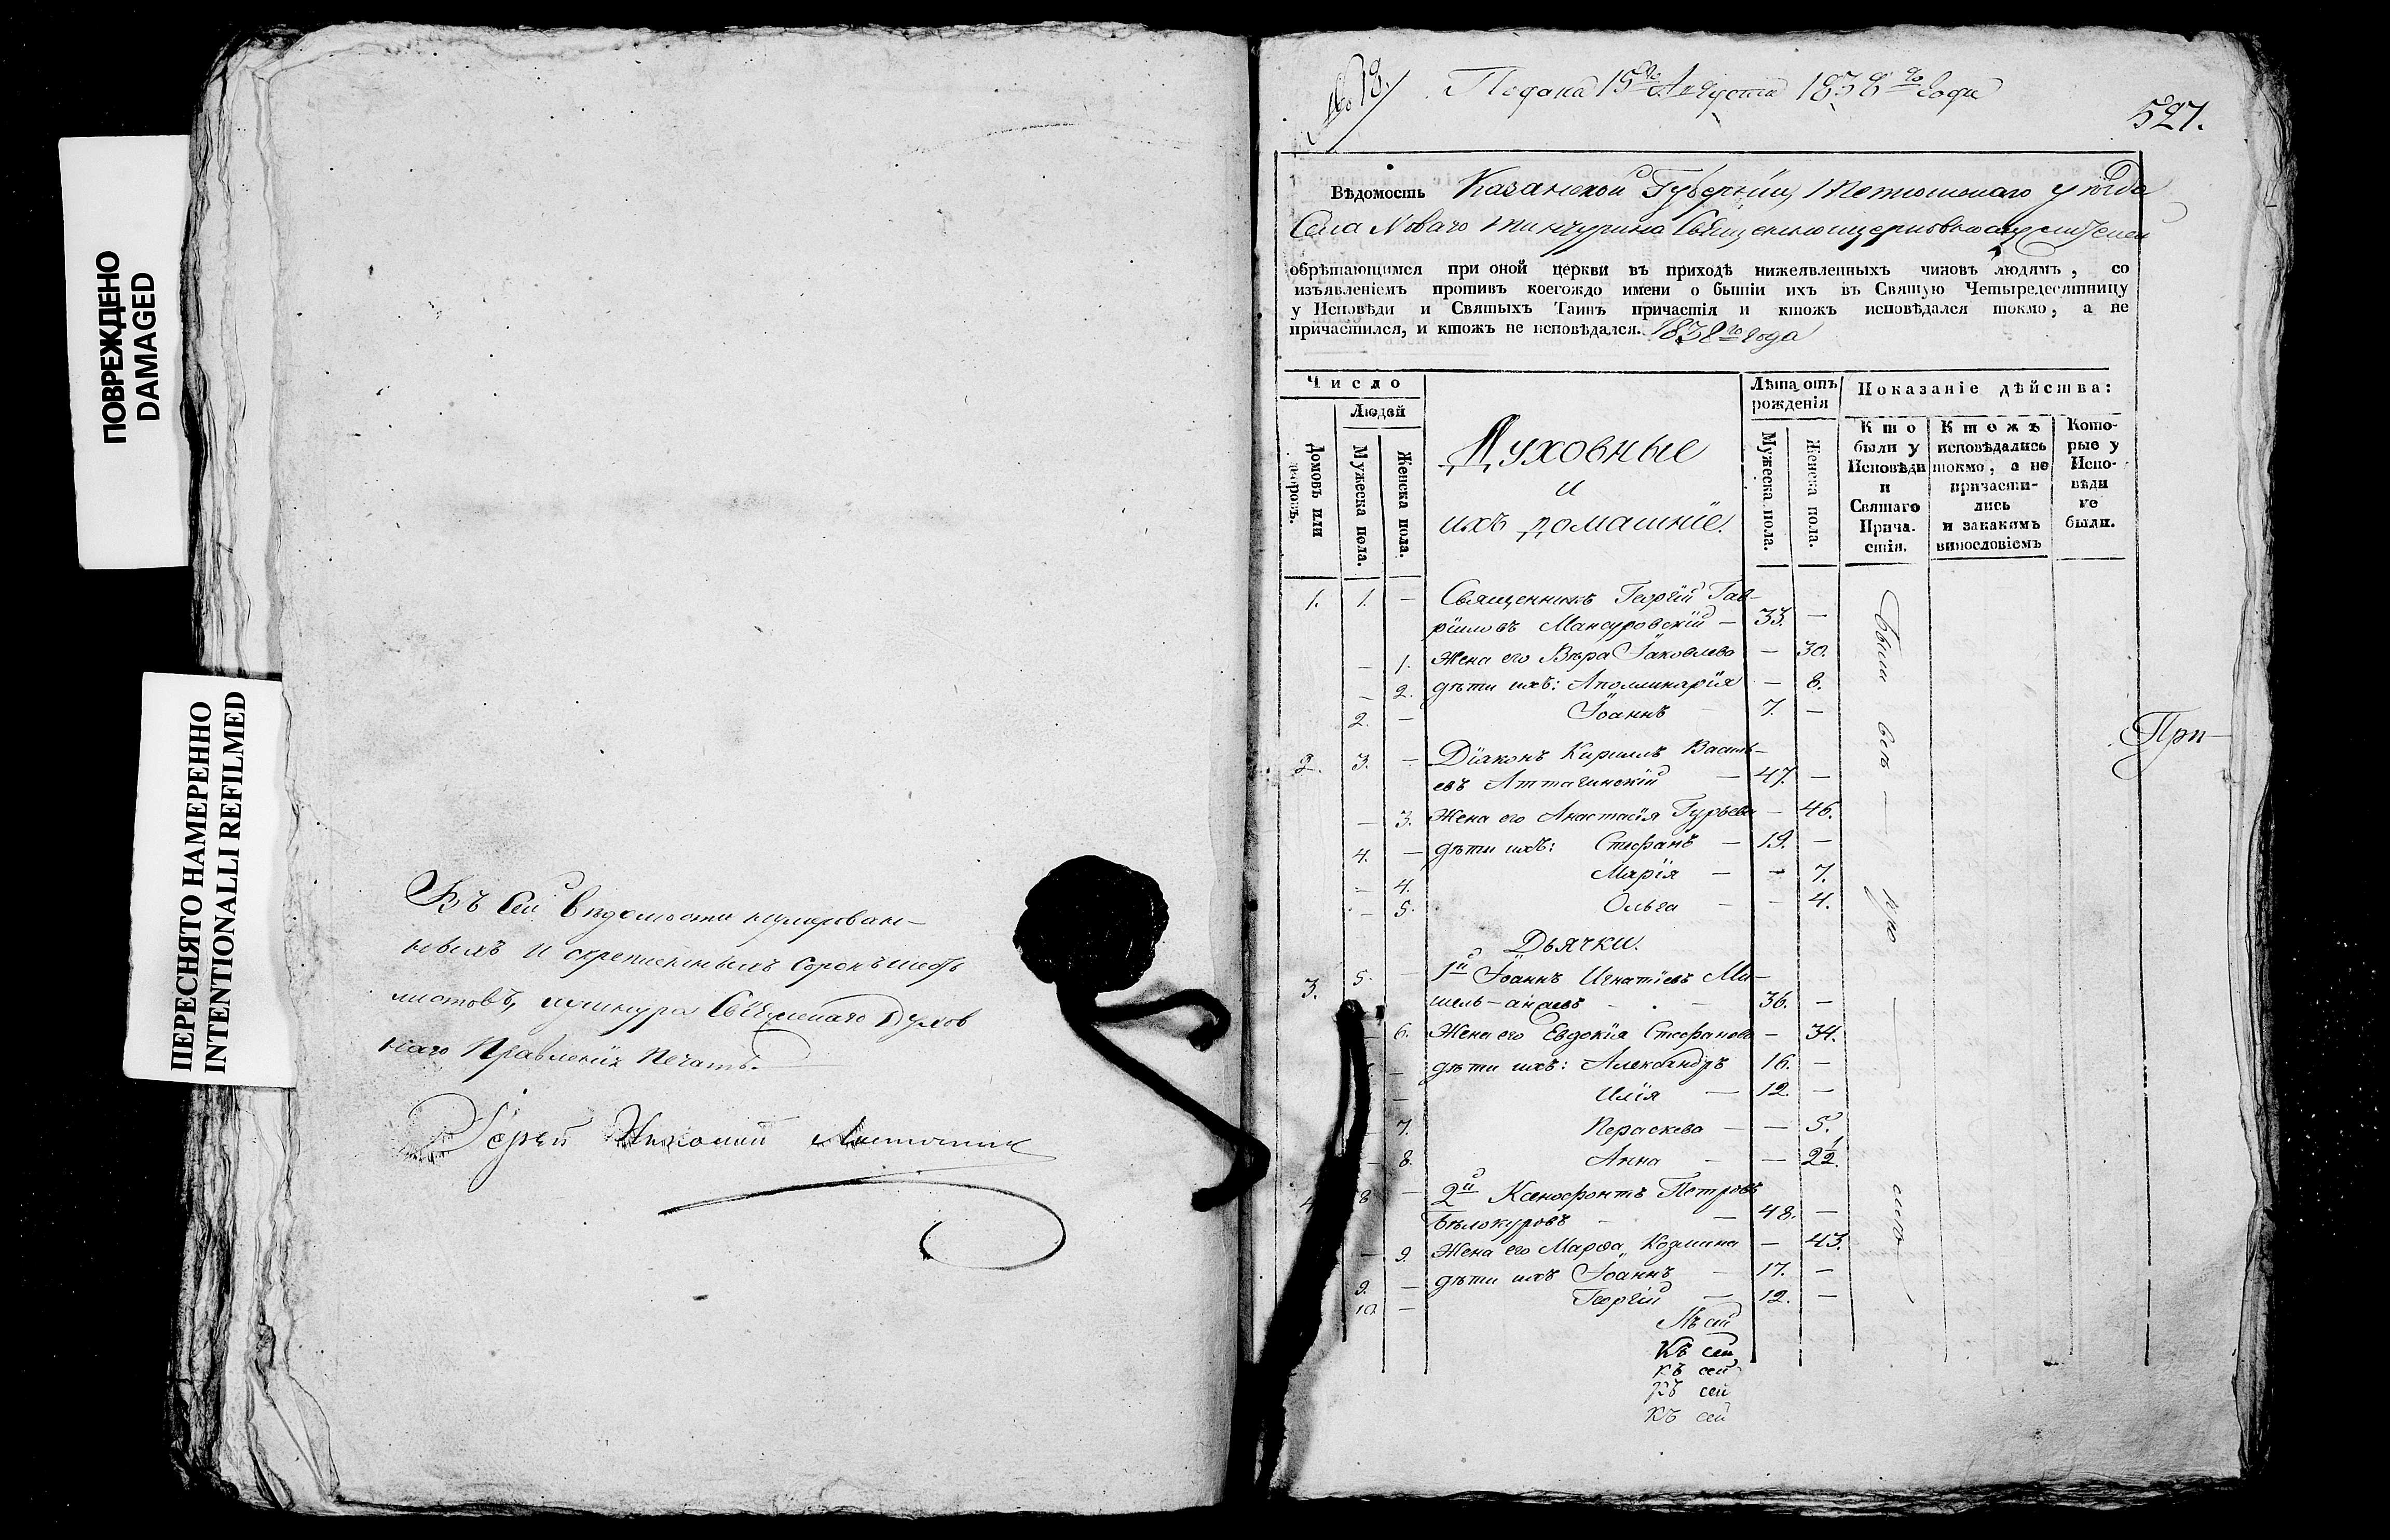 ПОВРЕЖДЕНО
DAMAGED
ПЕРЕСНЯТО НАМЕРЕННО
INTENTIONALLI REFILMED
Въ сей ведомости нумерован-
ныхъ и скрепленныхъ сорокъ шесть
листовъ, шнура Свіяжскаго Духов
наго Правленія печать.
Іерей Николай
№ 18.
Подана 15го Августа 1838го года
527.
Вѣдомость Казанской Губерніи, Тетюшскаго уѣзда
Села Новаго Тинчурина Священноцерковнослужителей
обрѣтающимся при оной церкви въ приходѣ нижеявленныхъ чиновъ людямъ, со
изъявленіемъ противъ коегождо имени о бытіи ихъ въ Святую Четыредесятницу
у Исповѣди и Святыхъ Таинъ причастія и ктожъ исповѣдался токмо, а не
причастился, и ктожъ не исповѣдался. 1838го года
Число
Людей
Домовъ или дворовъ.
Мужеска пола.
Женска пола.
Духовные
и
ихъ домашніе.
Лѣта отъ рожденія
Мужеска пола.
Женска пола.
Показаніе дѣйства:
Кто были у Исповѣди и Святаго Причастія.
Ктожъ исповѣдались токмо, а не причасти-лись и закакимъ винословіемъ
Кото-рые у Испо-вѣди не были.
1. 1. — Священникъ Георгій Гав-
ріиловъ Мансуровскій — 33. —
— 1. Жена его Вѣра Іаковлева — 30.
— 2. дѣти ихъ: Аполлинарія — 8.
2. — Іоаннъ 7. —
2. 3. — Діаконъ Кириллъ Василь-
евъ Аттагинскій — 47. —
— 3. Жена его Анастасія Гурьева — 46.
4. — дѣти ихъ: Стефанъ — 19. —
— 4. Марія — — 7.
— 5. Ольга — — 4.
Дьячки.
3. 5. — 1й Іоаннъ Игнатіевъ Ми-
шель-анаевъ — 36. —
— 6. Жена его Евдокія Стефанова — 34.
— дѣти ихъ: Александръ 16. —
— Илія — 12. —
7. Параскева — — 5.
— 8. Анна — — 2½.
4 8 — 2й Ксенофонтъ Петровъ
Бѣлокуровъ — 48. —
— 9. Жена его Марѳа Козмина — 43.
9. — дѣти ихъ Іоаннъ — 17. —
10. — Георгій — 12. —
Были всѣ
При-
Къ сей
Къ сей
Къ сей
Къ сей
Къ сей